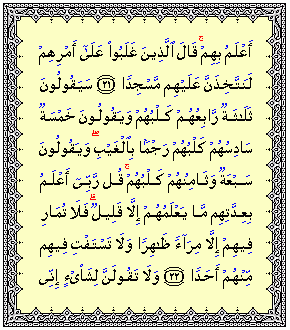 أَعْلَمُ بِهِمْ ۚ قَالَ ٱلَّذِينَ غَلَبُوا۟ عَلَىٰٓ أَمْرِهِمْ
لَنَتَّخِذَنَّ عَلَيْهِم مَّسْجِدًا ﴿٢١﴾ سَيَقُولُونَ
ثَلَـٰثَةٌ رَّابِعُهُمْ كَلْبُهُمْ وَيَقُولُونَ خَمْسَةٌ
سَادِسُهُمْ كَلْبُهُمْ رَجْمًۢا بِٱلْغَيْبِ ۖ وَيَقُولُونَ
سَبْعَةٌ وَثَامِنُهُمْ كَلْبُهُمْ ۚ قُل رَّبِّىٓ أَعْلَمُ
بِعِدَّتِهِم مَّا يَعْلَمُهُمْ إِلَّا قَلِيلٌ ۗ فَلَا تُمَارِ
فِيهِمْ إِلَّا مِرَآءً ظَـٰهِرًا وَلَا تَسْتَفْتِ فِيهِم
مِّنْهُمْ أَحَدًا ﴿٢٢﴾ وَلَا تَقُولَنَّ لِشَا۟ىْءٍ إِنِّى